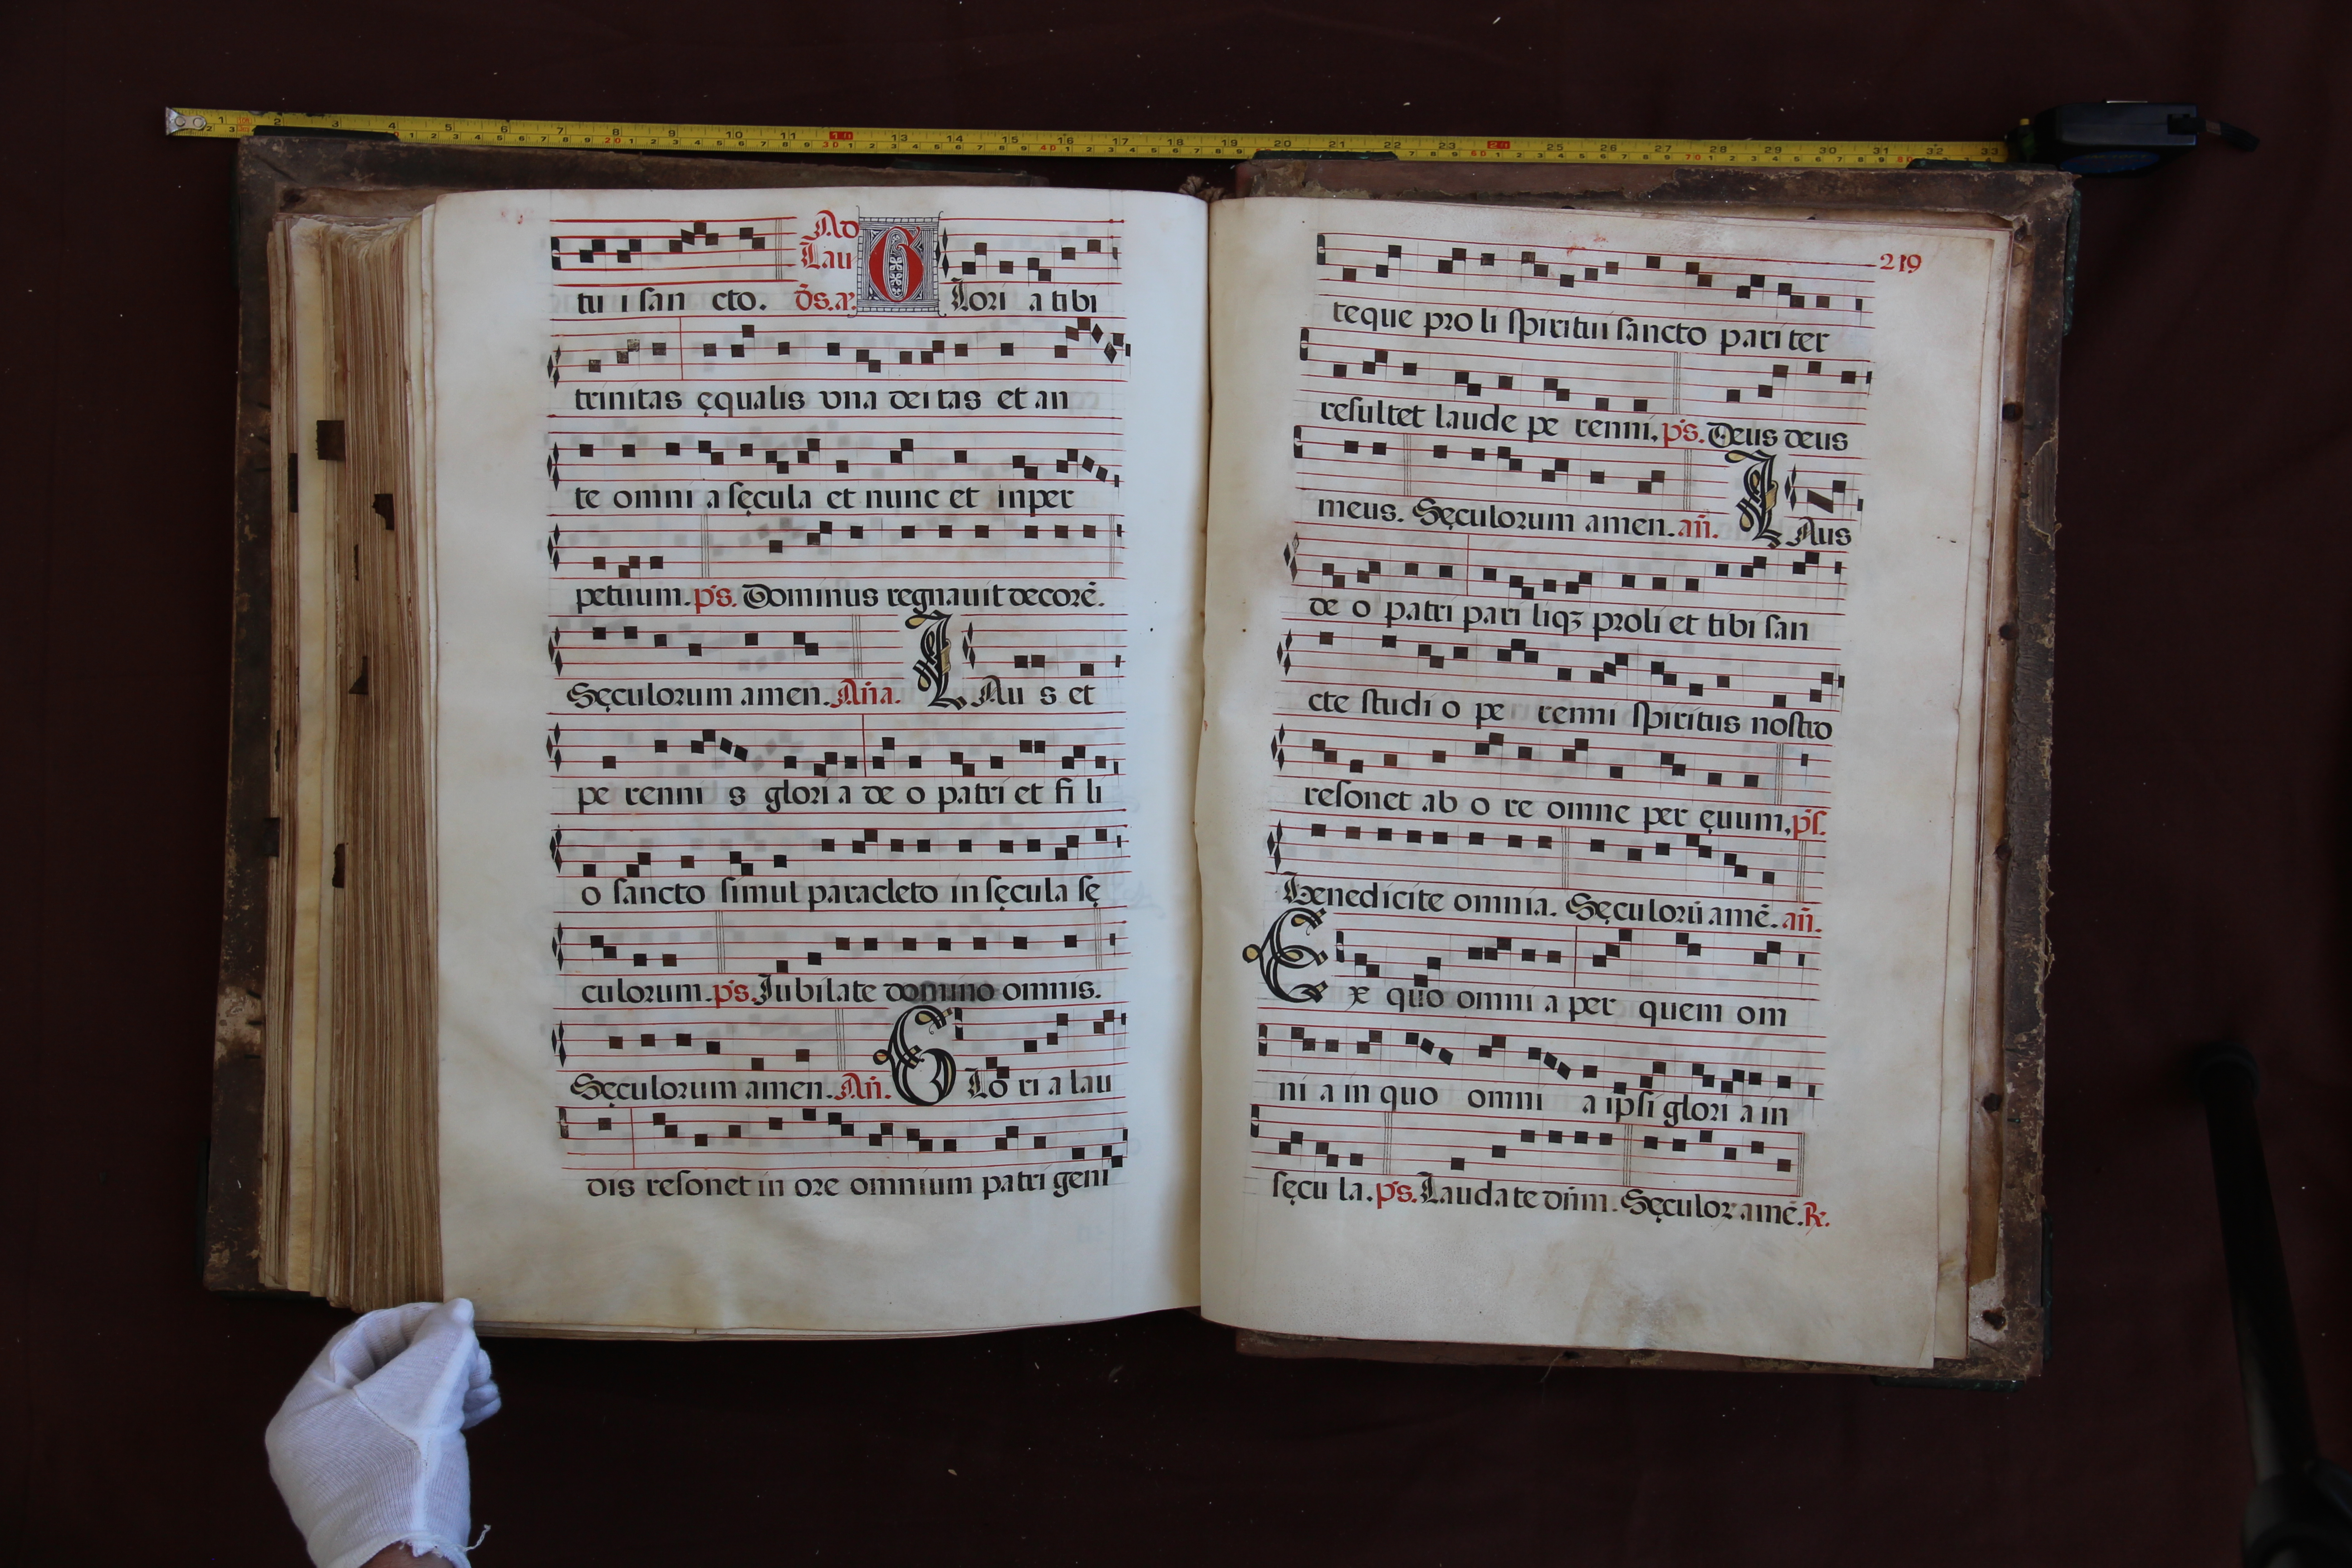 tu i san cto. Ad Lau ds. a. GLori a tibi
trinitas ęqualis vna dei tas et an
te omni a sęcula et nunc et inper
petuum. ps. Dominus regnauit decorē.
Sęculorum amen. Aña. LAu s et
pe renni s glori a de o patri et fi li
o sancto simul paracleto in sęcula sę
culorum. ps. Iubilate domino omnis.
Sęculorum amen. Añ. GLo ri a lau
dis resonet in ore omnium patri geni
219
teque pro li spiritui sancto pari ter
resultet laude pe renni. ps. Deus deus
meus. Sęculorum amen. añ. LAus
de o patri pari liqꝫ proli et tibi san
cte studi o pe renni spiritus nostro
resonet ab o re omne per ęuum. ps.
Benedicite omnia. Sęculorū amē. añ.
Ex quo omni a per quem om
ni a in quo omni a ipsi glori a in
sęcu la. ps. Laudate dñm. Sęculor amē. ꝶ.